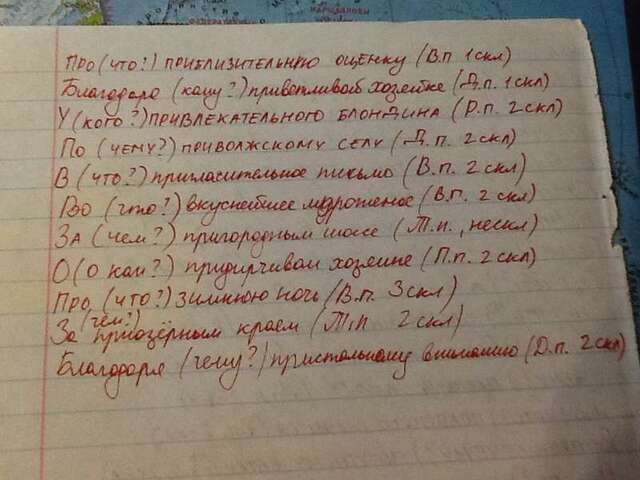 Про (что?) приблизительную оценку (В.п 1скл)
Благодаря (кому?) приветливой хозяйке (Д.п. 1скл)
У (кого?) привлекательного блондина (Р.п. 2скл)
По (чему?) приволжскому селу (Д.п. 2скл)
В (что?) пригласительное письмо (В.п. 2 скл)
Во (что?) вкуснейшее мороженое (В.п. 2 скл)
За (чем?) пригородным шоссе (Т.п., нескл)
О (о ком?) придирчивом хозяине (П.п. 2скл)
Про (что?) зимнюю ночь (В.п. 3скл)
За (чем?) приозёрным краем (Т.п 2скл)
Благодаря (чему?) пристальному вниманию (Д.п. 2скл)